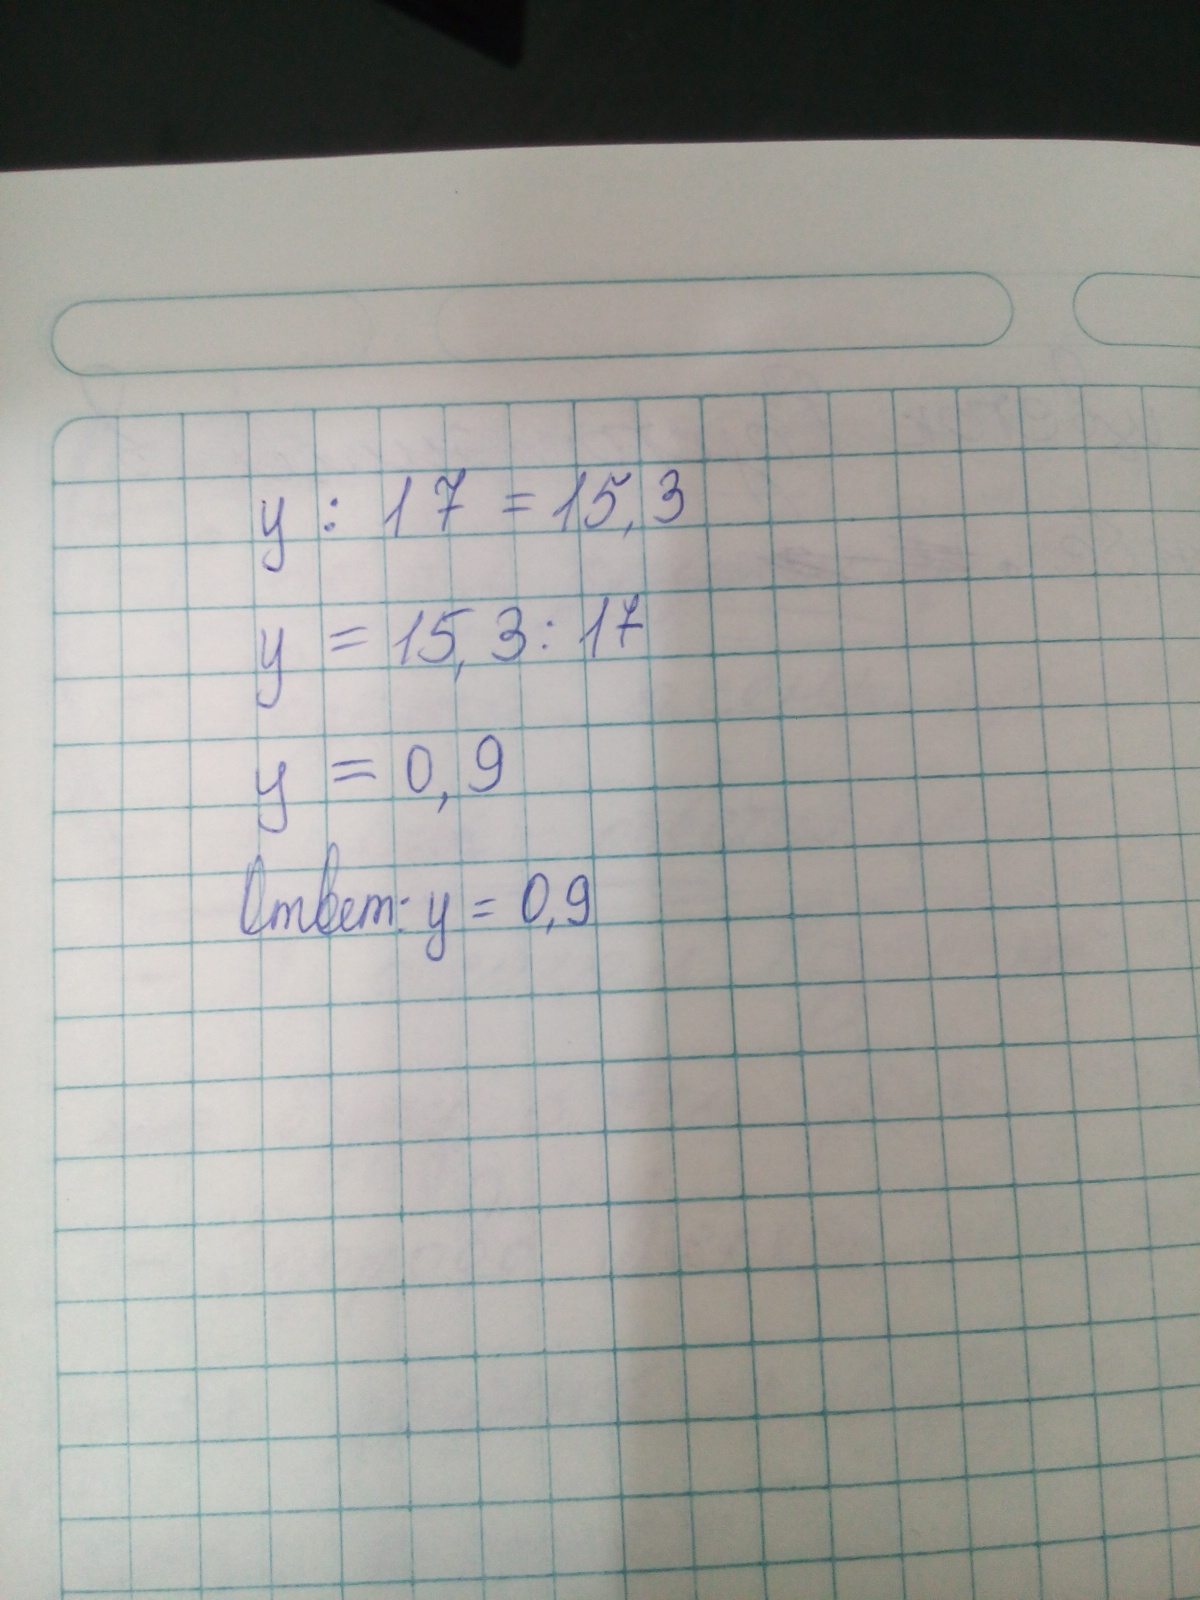 y : 17 = 15,3
y = 15,3 : 17
y = 0,9
Ответ: y = 0,9